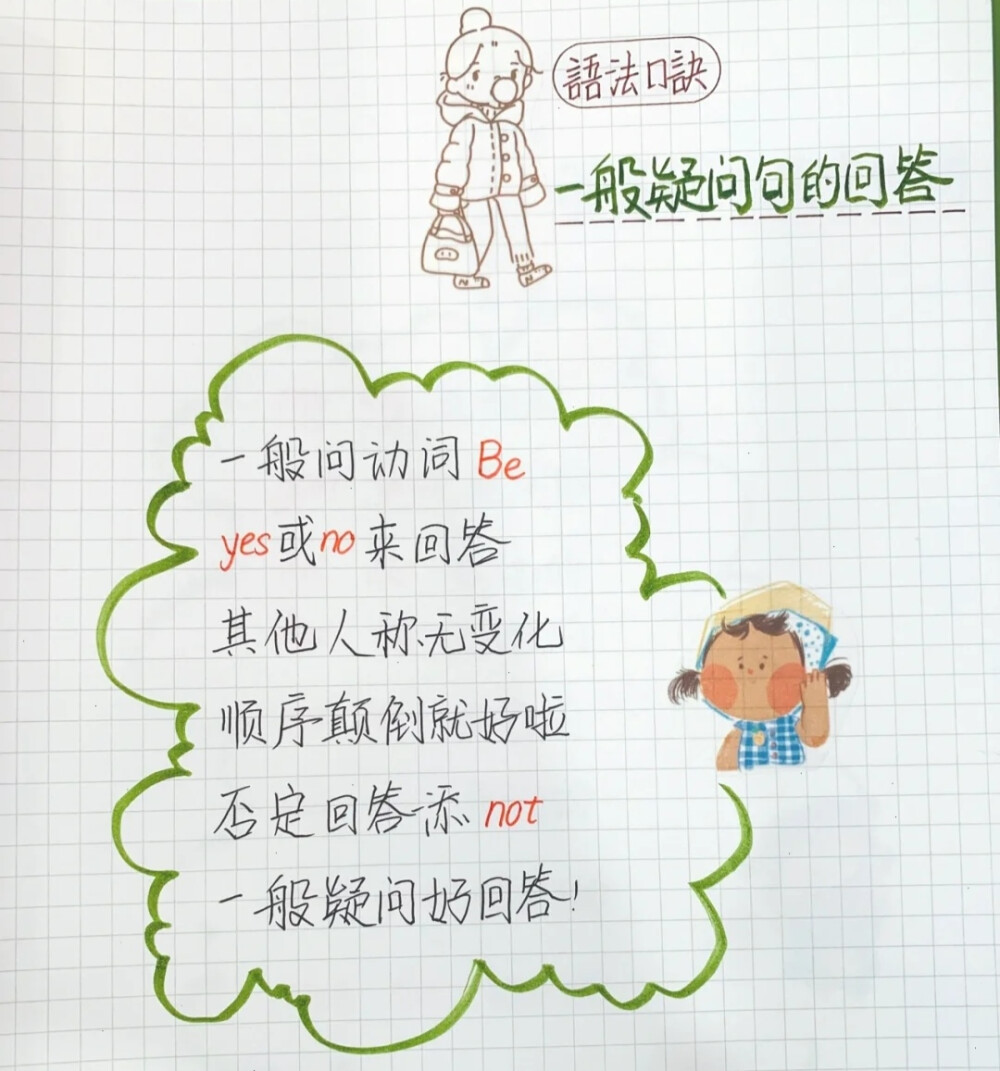 語法口訣
一般疑问句的回答
一般问动词 Be
yes或no来回答
其他人称无变化
顺序颠倒就好啦
否定回答添 not
一般疑问好回答!